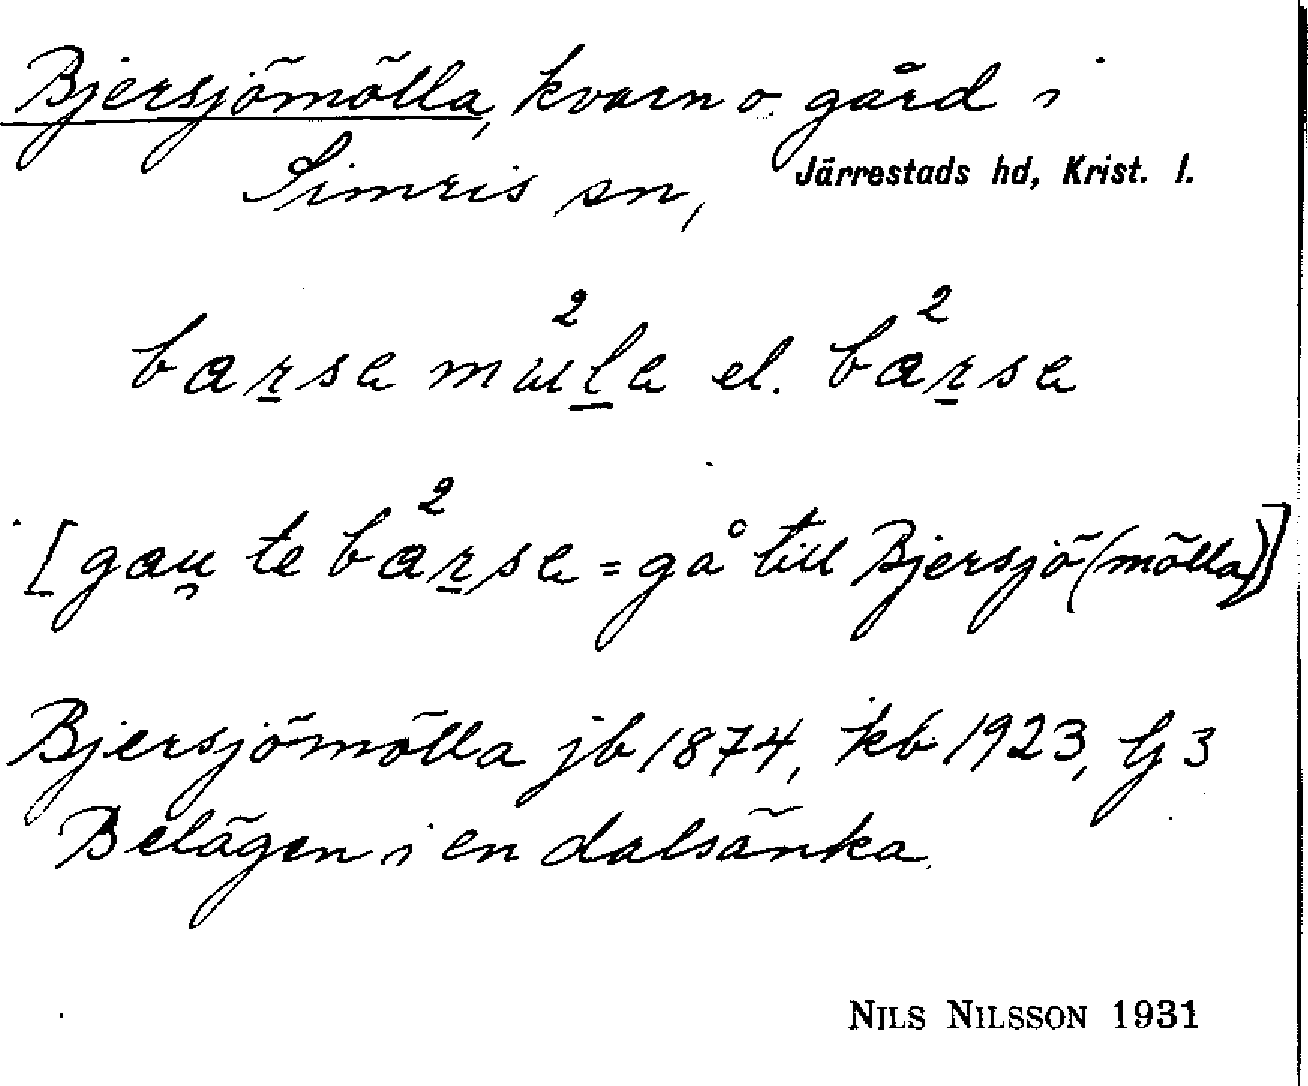 Bjersjömölla, kvarn o. gård i
Simris sn, Järrestads hd, Krist. l.
barsa mula el. barsa
[gau te barsa = gå till Bjersjö(mölla)]
Bjersjömölla jb 1874, kb 1923, G 3
Belägen i en dalsänka.
NILS NILSSON 1931